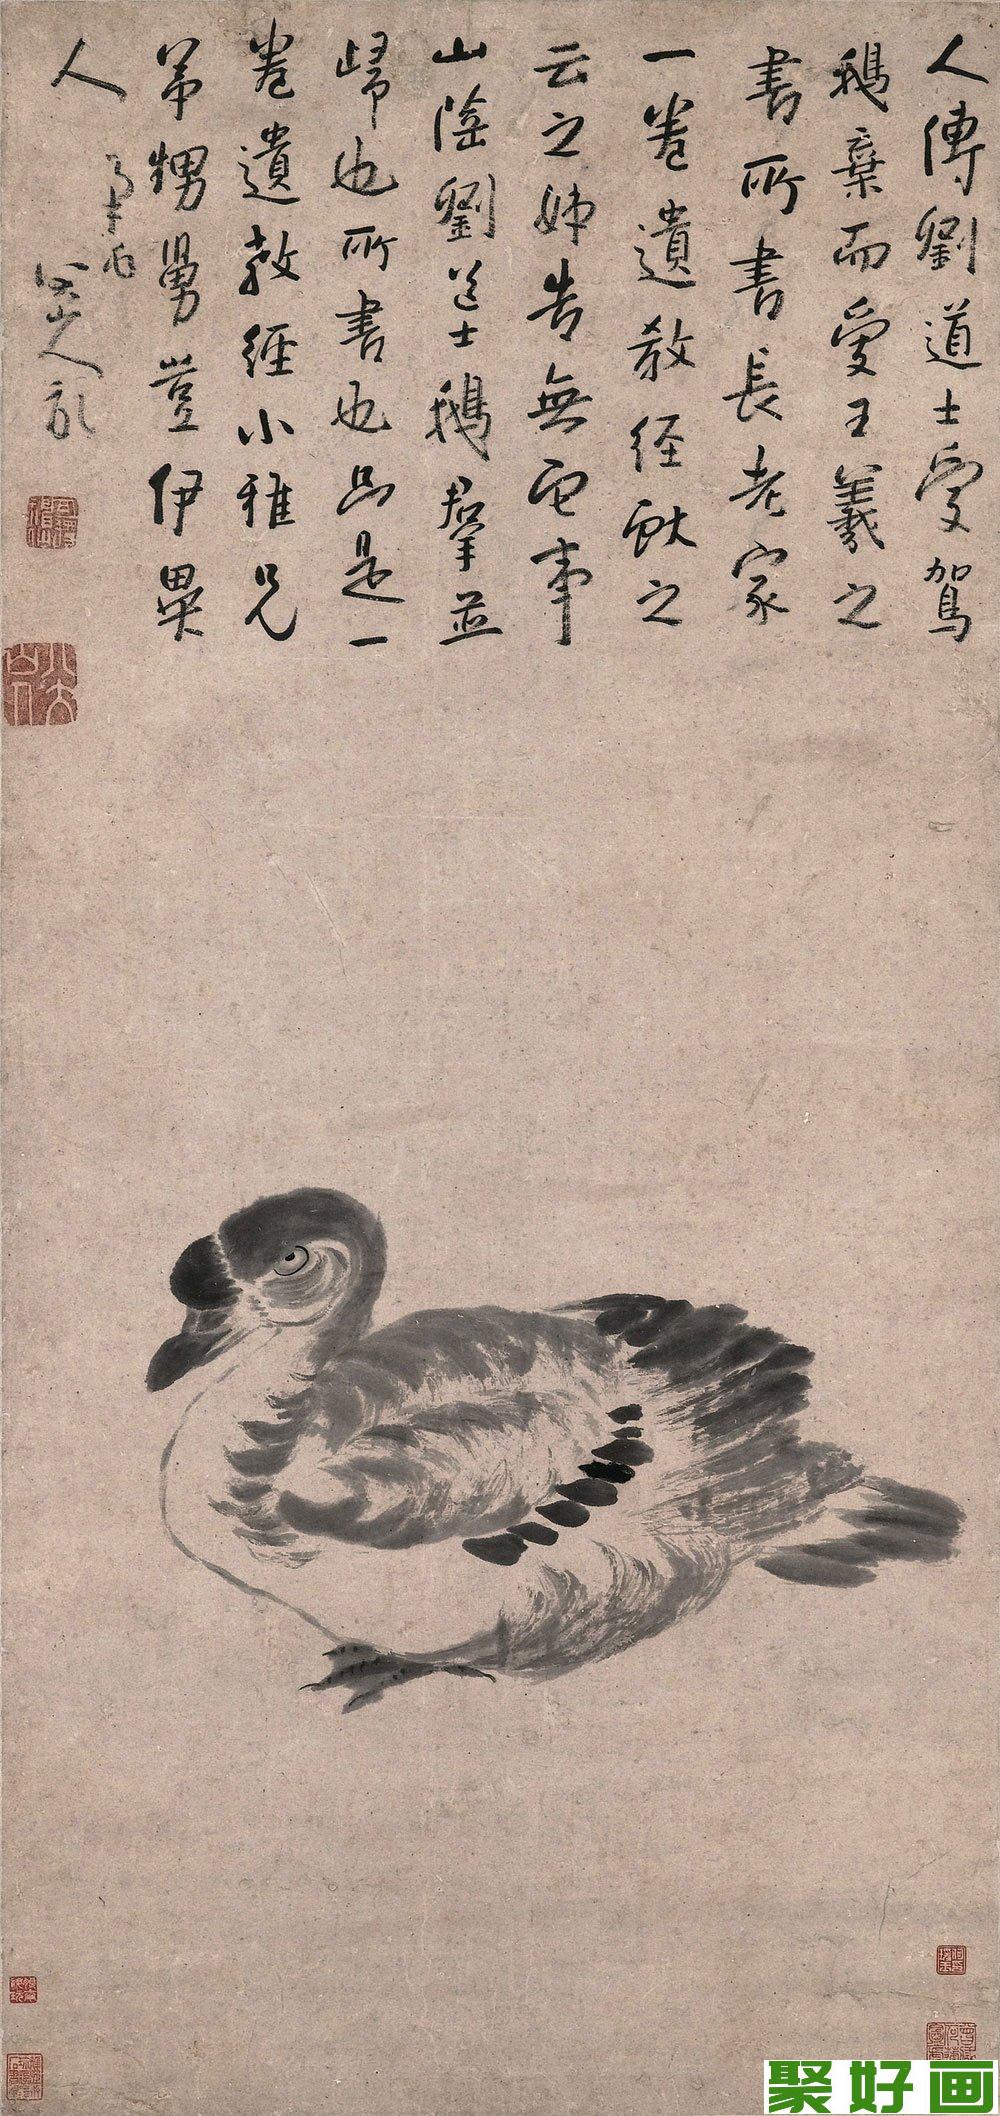 人傳劉道士愛駕
鵝棄而愛王羲之
書所書長老家
一卷遺教經獻之
云之姊告無口事
山陰劉道士鵝羣並
歸也所書也只是一
卷遺教經小雅兄
弟甥舅豈伊異
人
八大山人
聚好画